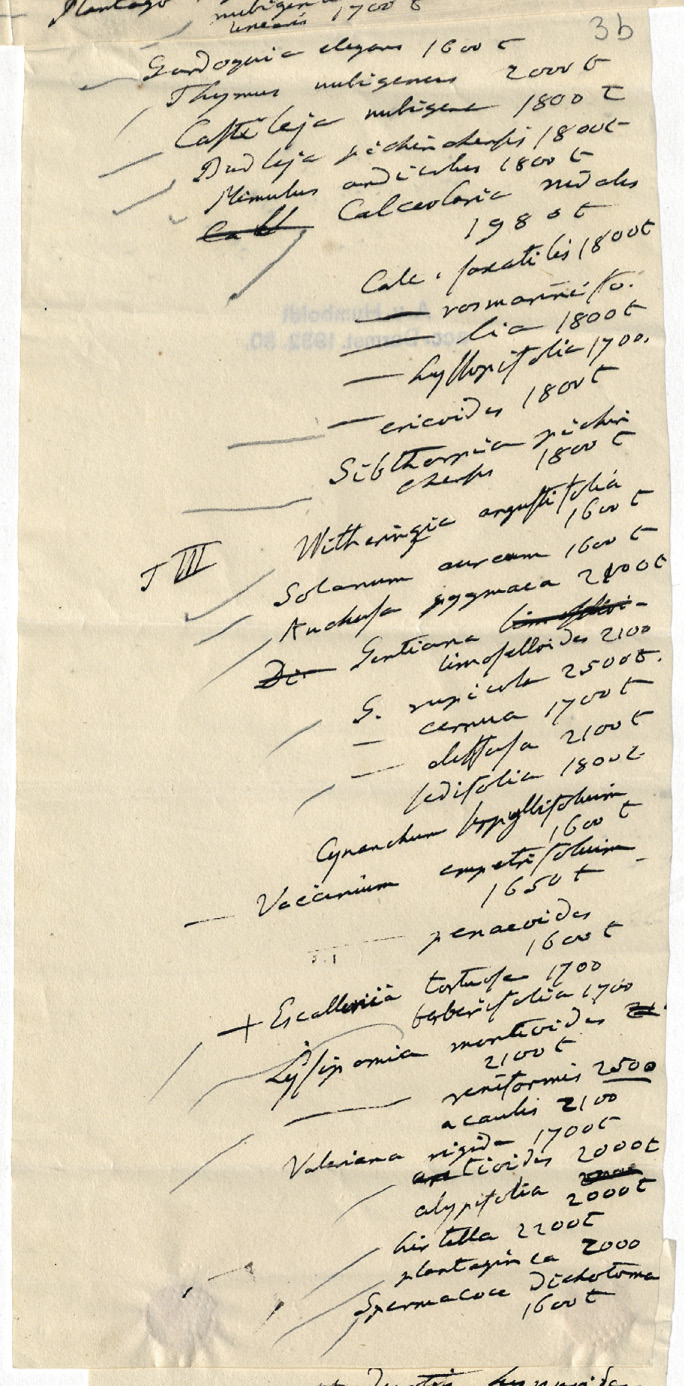 Plantago
nubigena
linearis 1700 t
3b
Gardoquia elegans 1600 t
Thymus nubigenus 2000 t
Castilleja nubigena 1800 t
Budleja pichinchensis 1800t
Mimulus andicolus 1800 t
Call Calceolaria
1980 t
Calc. saxatilis 1800t
— rosmarinifo-
lia 1800t
— hyssopifolia 1700.
— ericoides 1800t
Sibthorpia pichin
chensis 1800 t
Witheringia angustifolia
1600 t
T III
Solanum aureum 1600 t
Anchusa pygmaea 2100t
Di. Gentiana
limoselloides 2100
G. rupicola 2500t.
— cernua 1700t
— diffusa 2100t
sedifolia 1800t
Cynanchum serpyllifolium
1600 t
Vaccinium empetrifolium
1650 t
penaeoides
1600 t
+ Escallonia tortuosa 1700
berberifolia 1700
Lysipomia montioides
2100t
— reniformis 2500
acaulis 2100
Valeriana rigida 1700t
aretioides 2000t
alypifolia
2000t
hirtella 2200t
plantaginea 2000
Spermacoce dichotoma
1600t
A. v. Humboldt
acc. Darmst. 1932. 80.